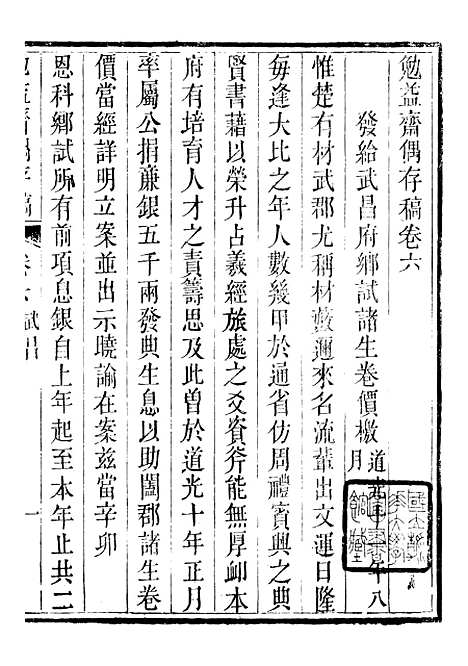 勉益齋偶存稿卷六
發給武昌府鄉試諸生卷價檄 道光 年八月
惟楚有材武郡尤稱材藪邇來名流輩出文運日隆
每逢大比之年人數幾甲於通省仿周禮賓興之典
賢書藉以榮升占義經旅處之爻資斧能無厚卹本
府有培育人才之責籌思及此曾於道光十年正月
率屬公捐亷銀五千兩發典生息以助闔郡諸生卷
價當經詳明立案並出示曉諭在案茲當辛卯
恩科鄉試所有前項息銀自上年起至本年止共二
卷六 武昌 一